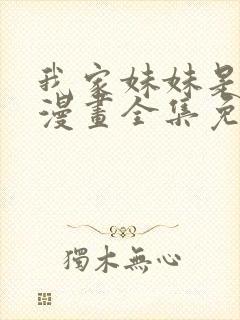 我家妹妹是
漫畫全集免
獨木無心